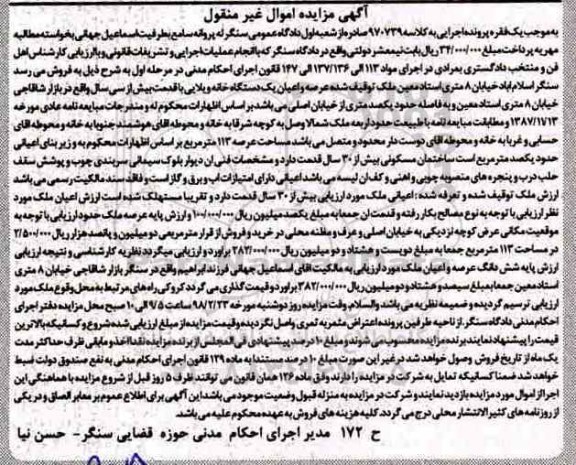 آگهی مزایده اموال غیر منقول
به موجب یک فقره پرونده اجرایی به کلاسه ۹۷۰۷۳۹ صادره از شعبه اول دادگاه عمومی سنگر له پروانه سامع بطرفیت اسماعیل جهانی بخواسته مطالبه
مهریه پرداخت مبلغ ۳۴/۰۰۰/۰۰۰ ریال بابت نیم عشر دولتی واقع در دادگاه سنگر که با انجام عملیات اجرایی و تشریفات قانونی و با ارزیابی کارشناس اهل
فن و منتخب دادگستری بمرادی در اجرای مواد ۱۱۳ الی ۱۳۷/۱۳۶ الی ۱۴۷ قانون اجرای احکام مدنی در مرحله اول به شرح ذیل به فروش می رسد
سنگر اسلام آباد خیابان ۸ متری استاد معین ملک توقیف شده عرصه و اعیان یک دستگاه خانه ویلایی با قدمت بیش از سی سال واقع در بازار شاقاجی
خیابان ۸ متری استاد معین و به فاصله حدود یکصد متری از خیابان اصلی می باشد بر اساس اظهارات محکوم له و مندرجات مبایعه نامه عادی مورخه
۱۳۸۷/۱۷۱۳ و مطابقت مبایعه نامه با طبیعت حدود اربعه ملک شمالا وصل به کوچه شرقا به خانه و محوطه آقای هوشمند جنوبا به خانه و محوطه آقای
حسابی و غربا به خانه و محوطه آقای دوست دار محدود و متصل می باشد مساحت عرصه ۱۱۳ متر مربع بر اساس اظهارات محکوم به و زیر بنای اعیانی
حدود یکصد متر مربع است ساختمان مسکونی بیش از ۳۰ سال قدمت دارد و مشخصات فنی آن دیوار بلوک سیمانی سربندی چوب و پوشش سقف
حلب درب و پنجره های منصوبه چوبی و آهنی و کف آن لیسه می باشد اعیانی دارای امتیازات آب و برق و گاز است و فاقد سند مالکیت رسمی می باشد
ارزش ملک توقیف شده و تعرفه شده : اعیانی ملک مورد ارزیابی بیش از ۳۰ سال قدمت دارد و تقریبا مستهلک شده است ارزش اعیان ملک مورد
نظر ارزیابی با توجه به نوع مصالح بکار رفته و قدمت آن جمعا به مبلغ یکصد میلیون ریال ۱۰۰/۰۰۰/۰۰۰ و ارزش پایه عرصه ملک حدود ارزیابی با توجه به
موقعیت مکانی عرض کوچه نزدیکی به خیابان اصلی و عرف و مظنه محلی در خرید و فروش از قرار متر مربعی دو میلیون و پانصد هزار ریال ۲/۵۰۰/۰۰۰
در مساحت ۱۱۳ متر مربع جمعا به مبلغ دویست و هشتاد و دو میلیون ریال ۲۸۲/۰۰۰/۰۰۰ برآورد و ارزیابی میگردد نظریه کارشناسی و نتیجه ارزیابی
ارزش پایه شش دانگ عرصه و اعیان ملک مورد ارزیابی به مالکیت آقای اسماعیل جهانی فرزند ابراهیم واقع در سنگر بازار شاقاجی خیابان ۸ متری
استاد معین جمعا به مبلغ سیصد و هشتاد و دو میلیون ریال ۳۸۲/۰۰۰/۰۰۰ برآورد و قیمت گذاری می گردد کروکی راه های مرتبط به محل وقوع ملک مورد
ارزیابی ترسیم گردیده و ضمیمه نظریه می باشد والسلام وقت مزایده روز دوشنبه مورخه ۹۸/۲/۲۳ ساعت ۹/۵ الی ۱۰ صبح محل مزایده دفتر اجرای
احکام مدنی دادگاه سنگر از ناحیه طرفین پرونده اعتراض مثمر به ثمری واصل نگردیده و قیمت مزایده از مبلغ ارزیابی شده شروع و کسانیکه بالاترین
قیمت را پیشنهاد نمایند برنده مزایده محسوب می شوند و مبلغ ۱۰ درصد پیشنهادی فی المجلس از برنده مزایده نقدا اخذ و مابقی ظرف حداکثر مدت
یک ماه از تاریخ فروش وصول خواهد شد در غیر این صورت مبلغ ۱۰ درصد مستندا به ماده ۱۲۹ قانون اجرای احکام مدنی به نفع صندوق دولت ضبط
خواهد شد ضمنا کسانیکه تمایل به شرکت در مزایده را دارند وفق ماده ۱۲۶ همان قانون می توانند ظرف ۵ روز قبل از شروع مزایده با هماهنگی این
اجرا از اموال مورد مزایده بازدید نمایند و شرکت در مزایده به منزله قبول وضعیت موجود می باشد این آگهی برای اطلاع عموم بر معابر الصاق و در یکی
از روزنامه های کثیر الانتشار محلی درج می گردد. کلیه هزینه های فروش به عهده محکوم علیه می باشد.
ح ۱۷۲ مدیر اجرای احکام مدنی حوزه قضایی سنگر- حسن نیا